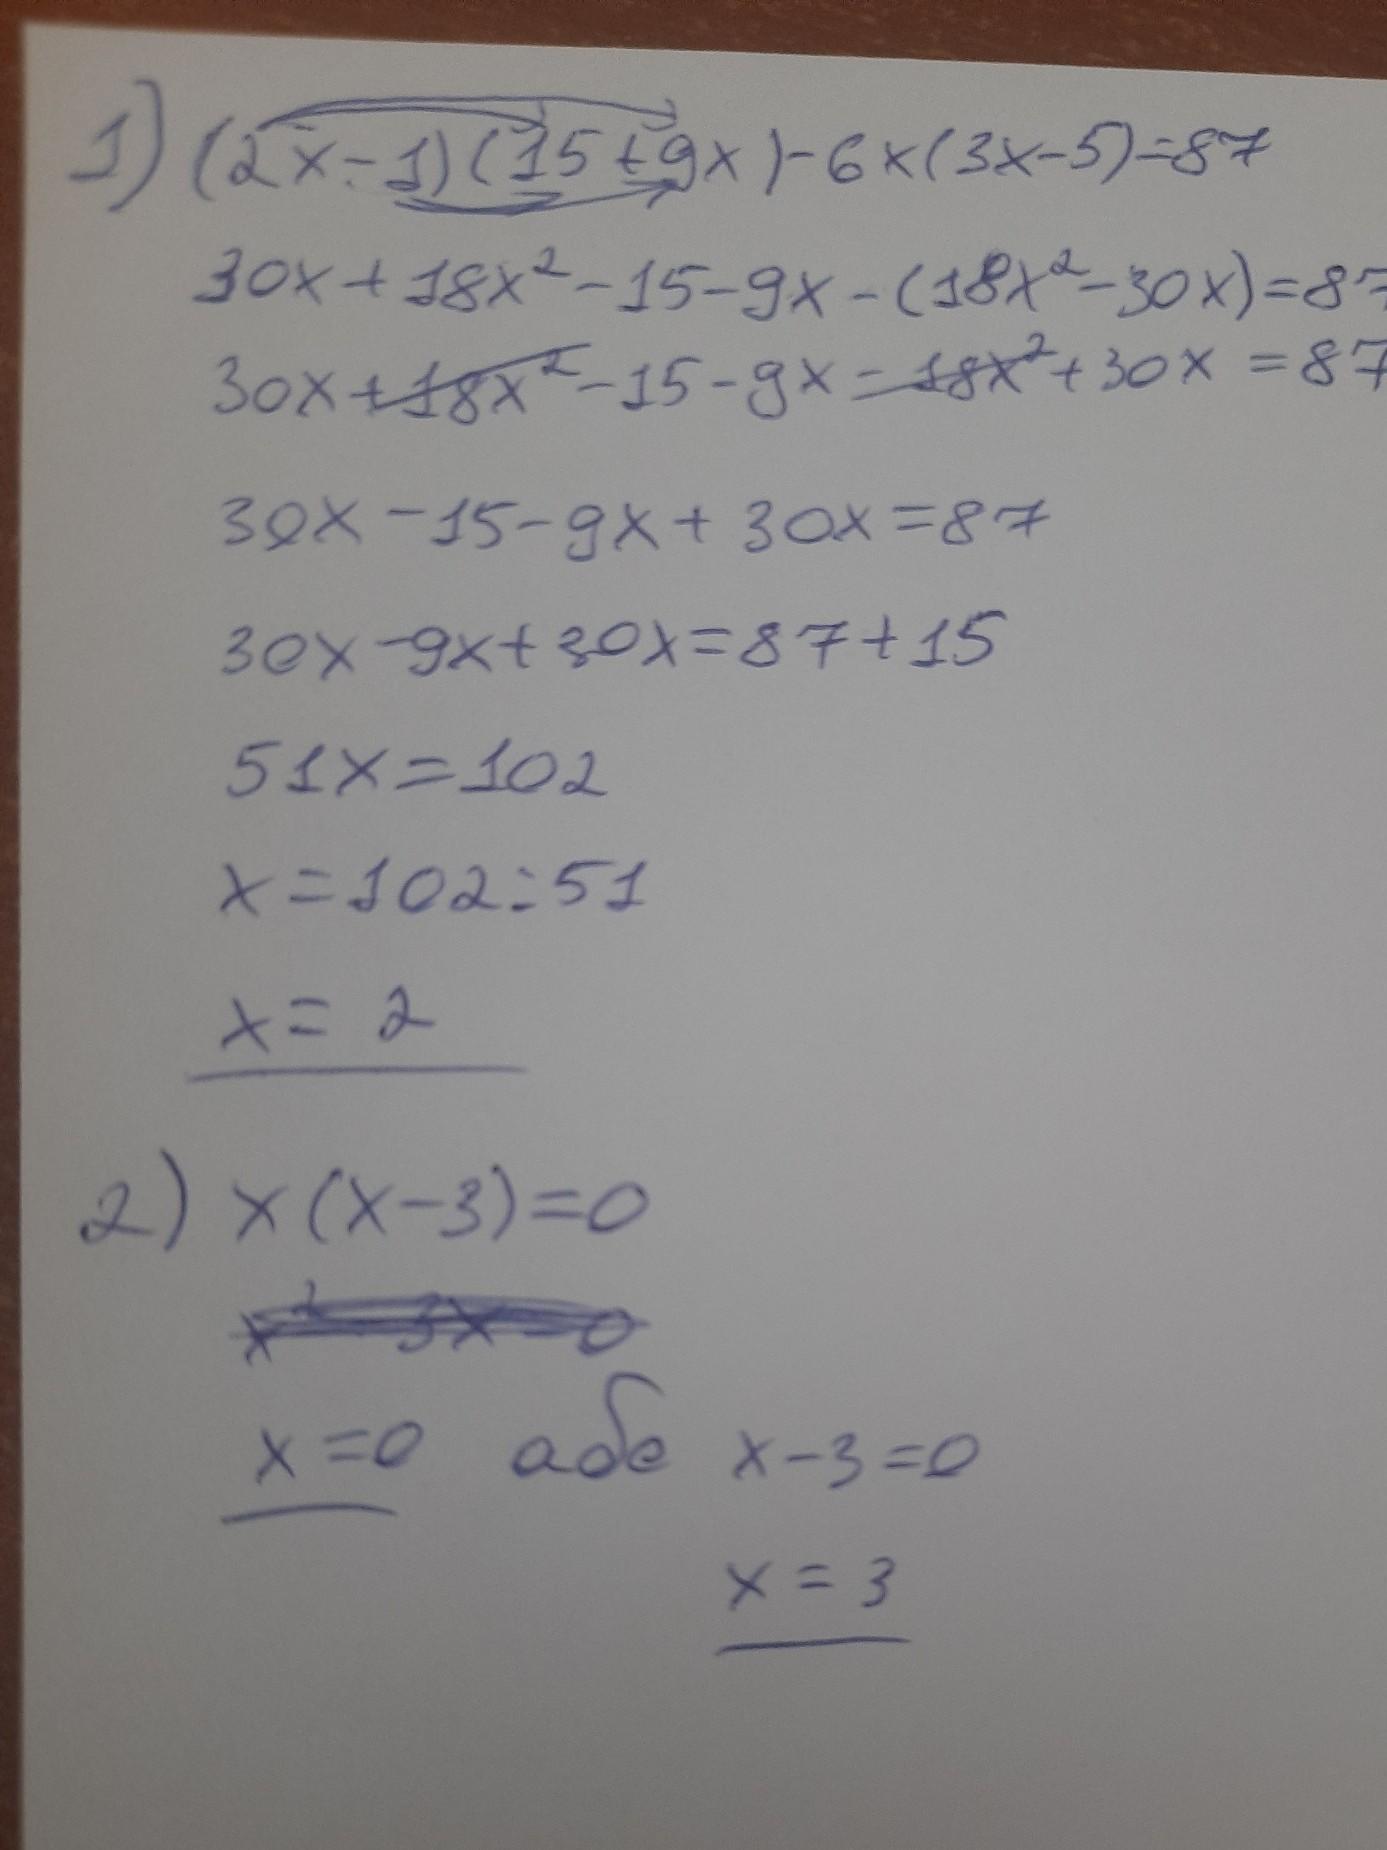 1) (2x-1)(15+9x)-6x(3x-5)=87
30x+18x²-15-9x-(18x²-30x)=87
30x+18x²-15-9x-18x²+30x=87
30x-15-9x+30x=87
30x-9x+30x=87+15
51x=102
x=102:51
x=2
2) x(x-3)=0
x²-3x=0
x=0 або x-3=0
x=3